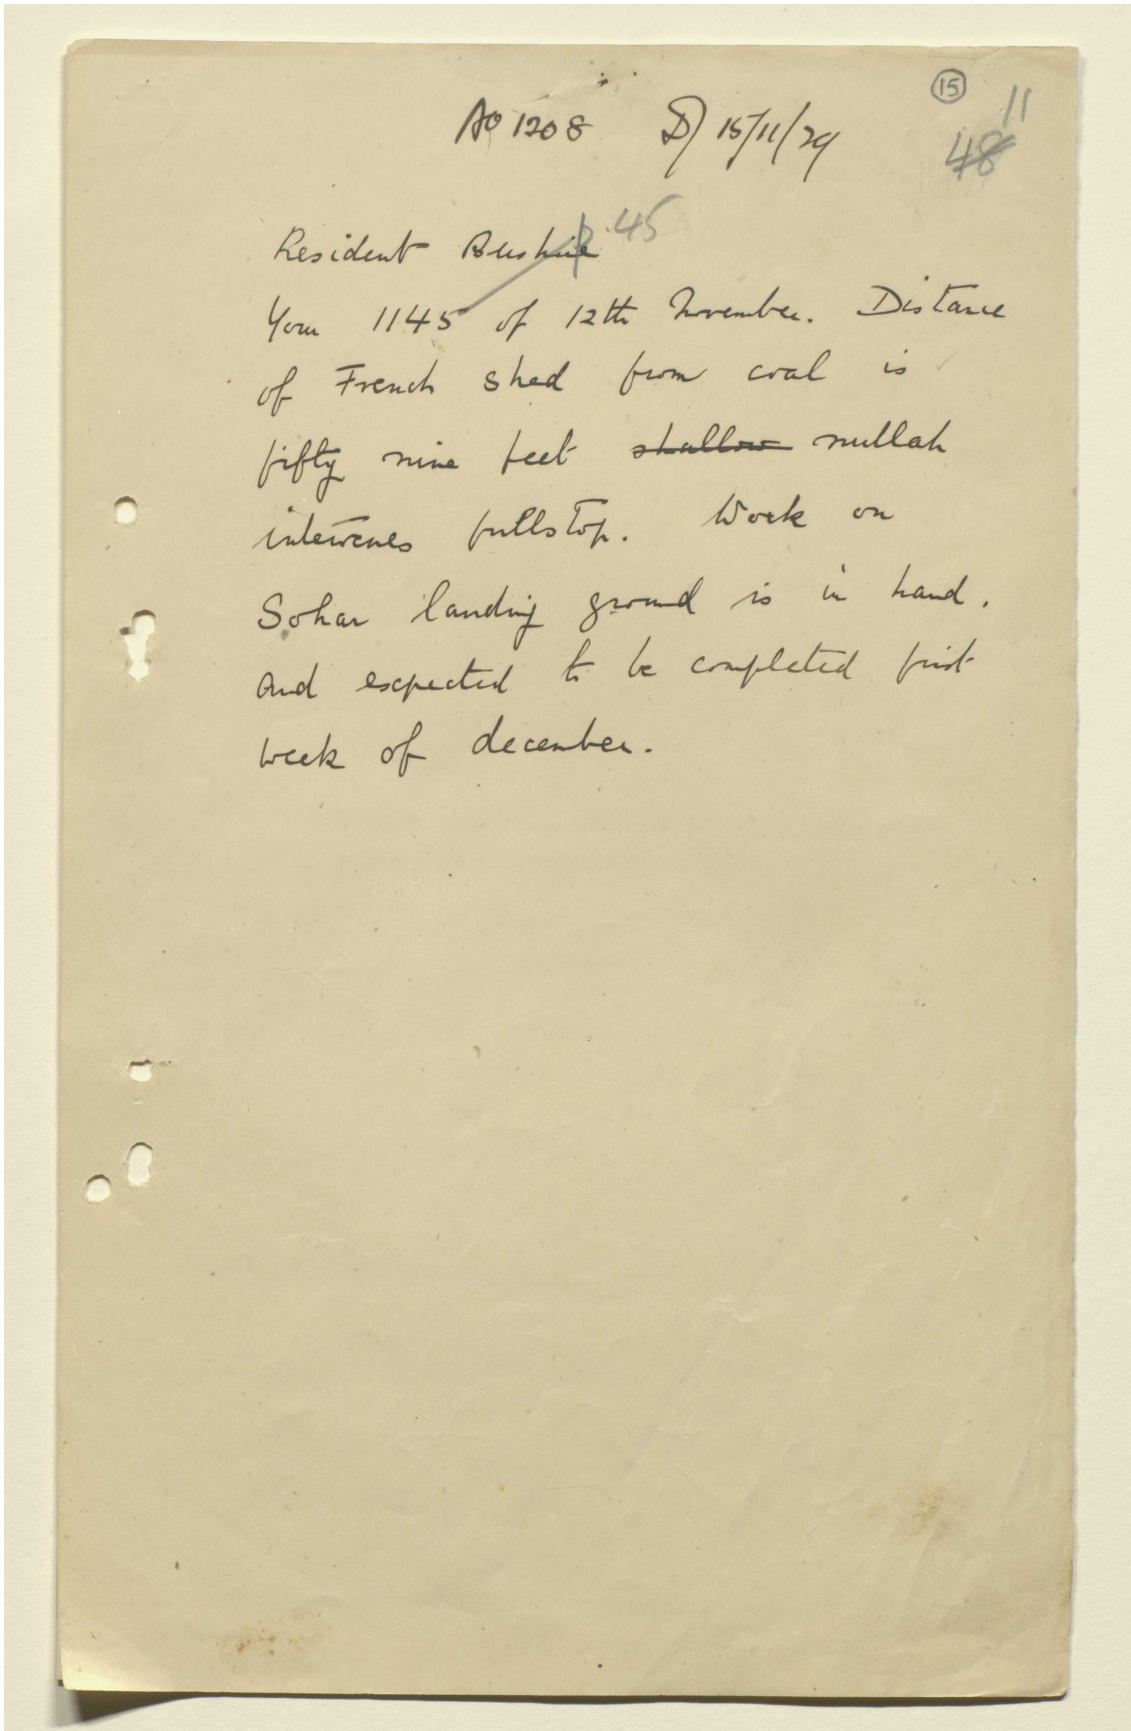 15
11
48
No 1208 D/ 15/11/29
p.45
Resident Bushire
Your 1145 of 12th November. Distance
of French shed from coal is
fifty nine feet shallow nullah
intervenes fullstop. Work on
Sohar landing ground is in hand.
and expected to be completed first
week of december.